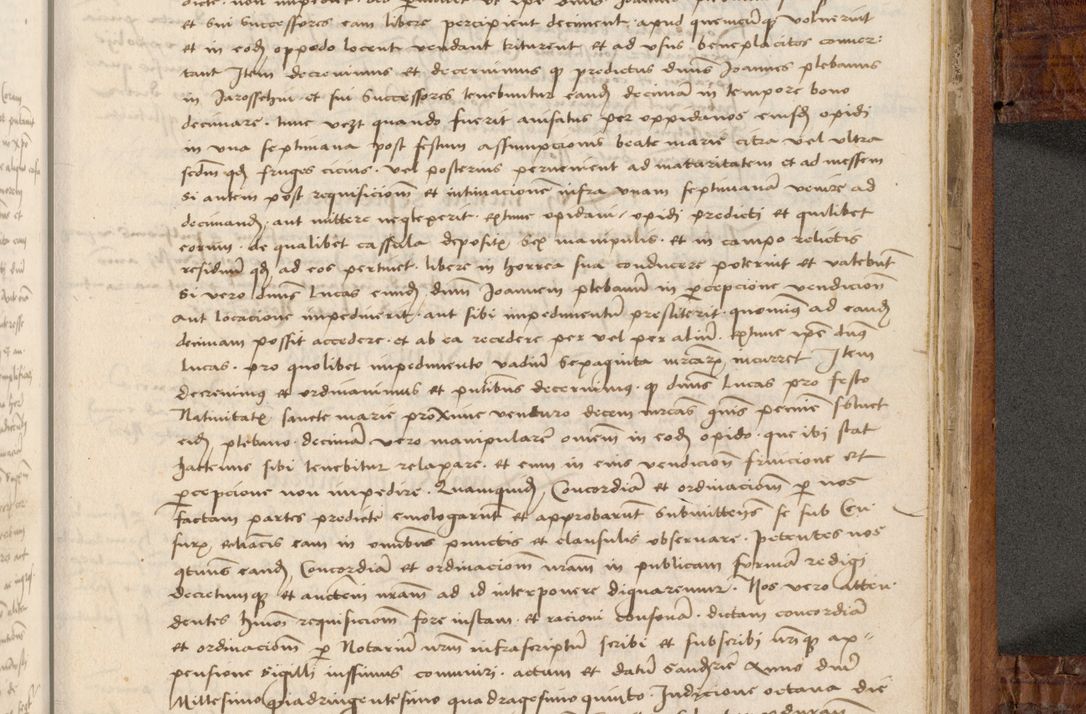 et sui Successores eam libere percipient deciment apud quemcunqȝ voluerint
et in eodȝ oppodo locent vendant triturent et ad usus beneplacitos conver:
tant Item decrevimus et decernimus qȝ predictus dnus Joannes plebanus
in Jarosschin et sui Successores tenebuntur eandȝ decimā in tempore bono
decimare . tunc vezt quando fuerit avisatus per oppidanos eiusdȝ opidi
in una septimana post festum assumpcionis beate marie citra vel ultra
scdm qdȝ fruges cicius . vel posterius pervenient ad maturitatem et ad messem
Si autem post requisicionē et intimacionē infra unam septimanā venire ad
decimandȝ . aut mittere neglexerit extunc opidani opidi predicti et quilibet
eorum . de qualibet cassula depositis sex manipulis . et in campo relictis
residuū qdȝ ad eos pertinet . libere in horrea sua conducere poterint et valebūt
Si vero dnus Lucas eundȝ dnum Joannem plebanum in pcepcione vendicionē
aut locacione impedirerit aut sibi impedimentū prestiterit . quominus ad eandȝ
decimam possit accedere . et ab ea recedere per vel per aliū . extunc ipē dnus
Lucas . pro quolibet impedimento vadium sexaginta mrcarȝ incurret Item
decrevimus et ordinavimus et pntibus decernimus . qȝ dnus Lucas pro festo
Nativitatis sancte marie proxime venturo decem mrcas solvet
eidȝ plebano . decimā vero manipularē omnem in eodȝ opido . que ibi stat
hactenus sibi tenebitur relaxare . et eum in eius vendicionē fruicione et
pcepcione non impedire . Quamquidȝ Concordiā et ordinacionē p nos
factam partes predicte emologarūt et approbarūt submittens se sub Cen-
suris ecliacis eam in omnibus punctis et clausulis observare . petentes nos
qtinus eandȝ Concordiā et ordinacionē nram in publicam formā redigi
decretumqȝ et auctem nram ad id interponere dignaremur . Nos vero atten-
dentes hmoi requisicionē fore iustam . et racioni consonā . dictam concordiā
et ordinacionē p Notariū nrm infrascriptū scribi et subscribi nriqȝ ap-
pensione sigilli iussimus communiri . actum et datū Anno dni
Millesimo quadringentesimo quadragesimo quinto . Indicione octava die